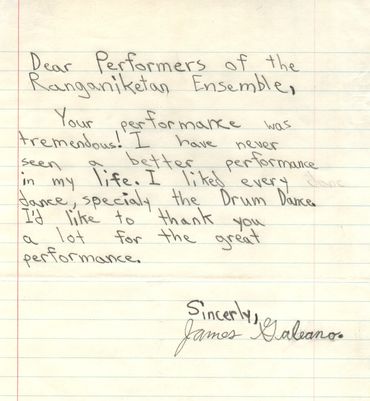 Dear Performers of the
Ranganiketan Ensemble,
Your performance was
tremendous! I have never
seen a better performance
in my life. I liked every
dance, specialy the Drum Dance.
I'd like to thank you
a lot for the great
performance.
Sincerly,
James Galeano.